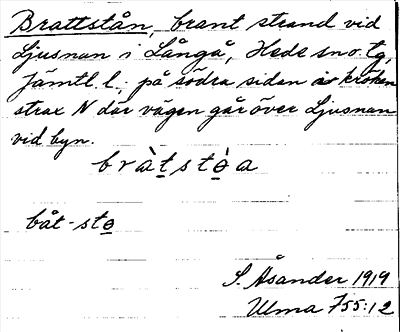 Brattstån, brant strand vid
Ljusnan i Långå, Hede sn o. tg,
Jämtl. l., på södra sidan av kröken
strax N där vägen går över Ljusnan
vid byn.
bràt̲stò̲a
båt-sto̲
S. Åsander 1919
Ulma 755:12